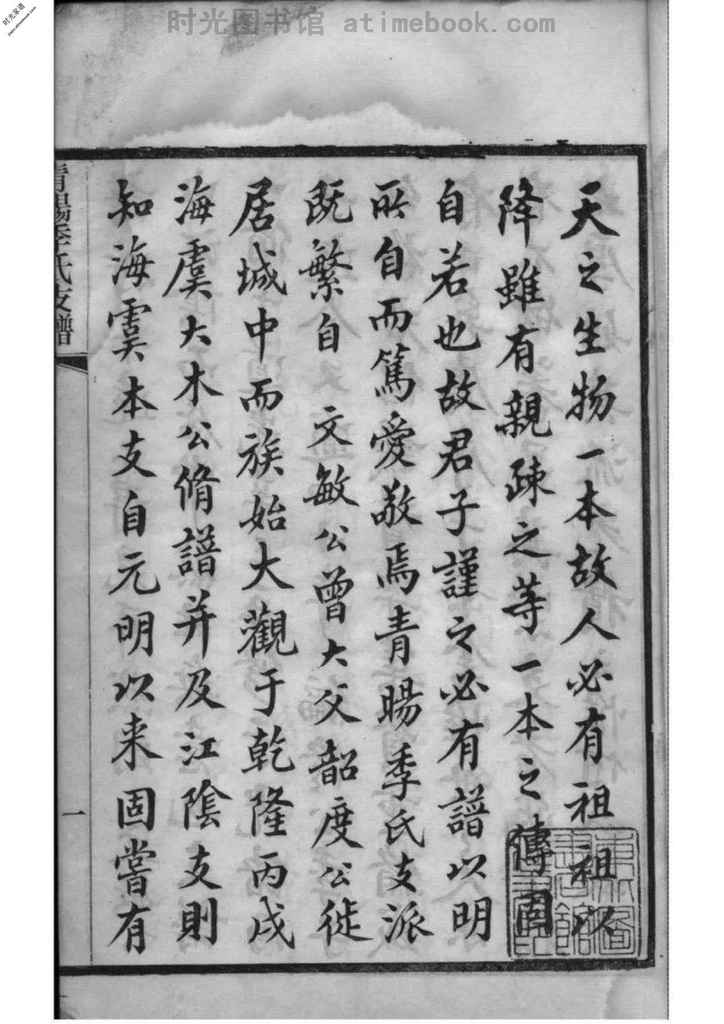 时光图书馆 atimebook.com
时光家谱
天之生物一本故人必有祖祖以
降雖有親疎之等一本之傳固
自若也故君子謹之必有譜以明
所自而篤愛敬焉青暘季氏支派
既繁自 文敏公曾大父韶度公徙
居城中而族始大觀于乾隆丙戌
海虞大木公脩譜并及江陰支則
知海虞本支自元明以来固嘗有
青暘季氏支譜
一